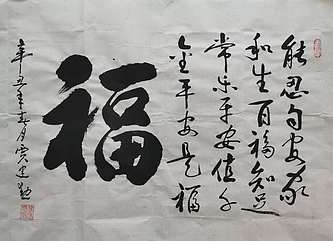 能忍自安家
和生百福知足
常乐平安值千
金平安是福
福
辛丑年春月贾建勋